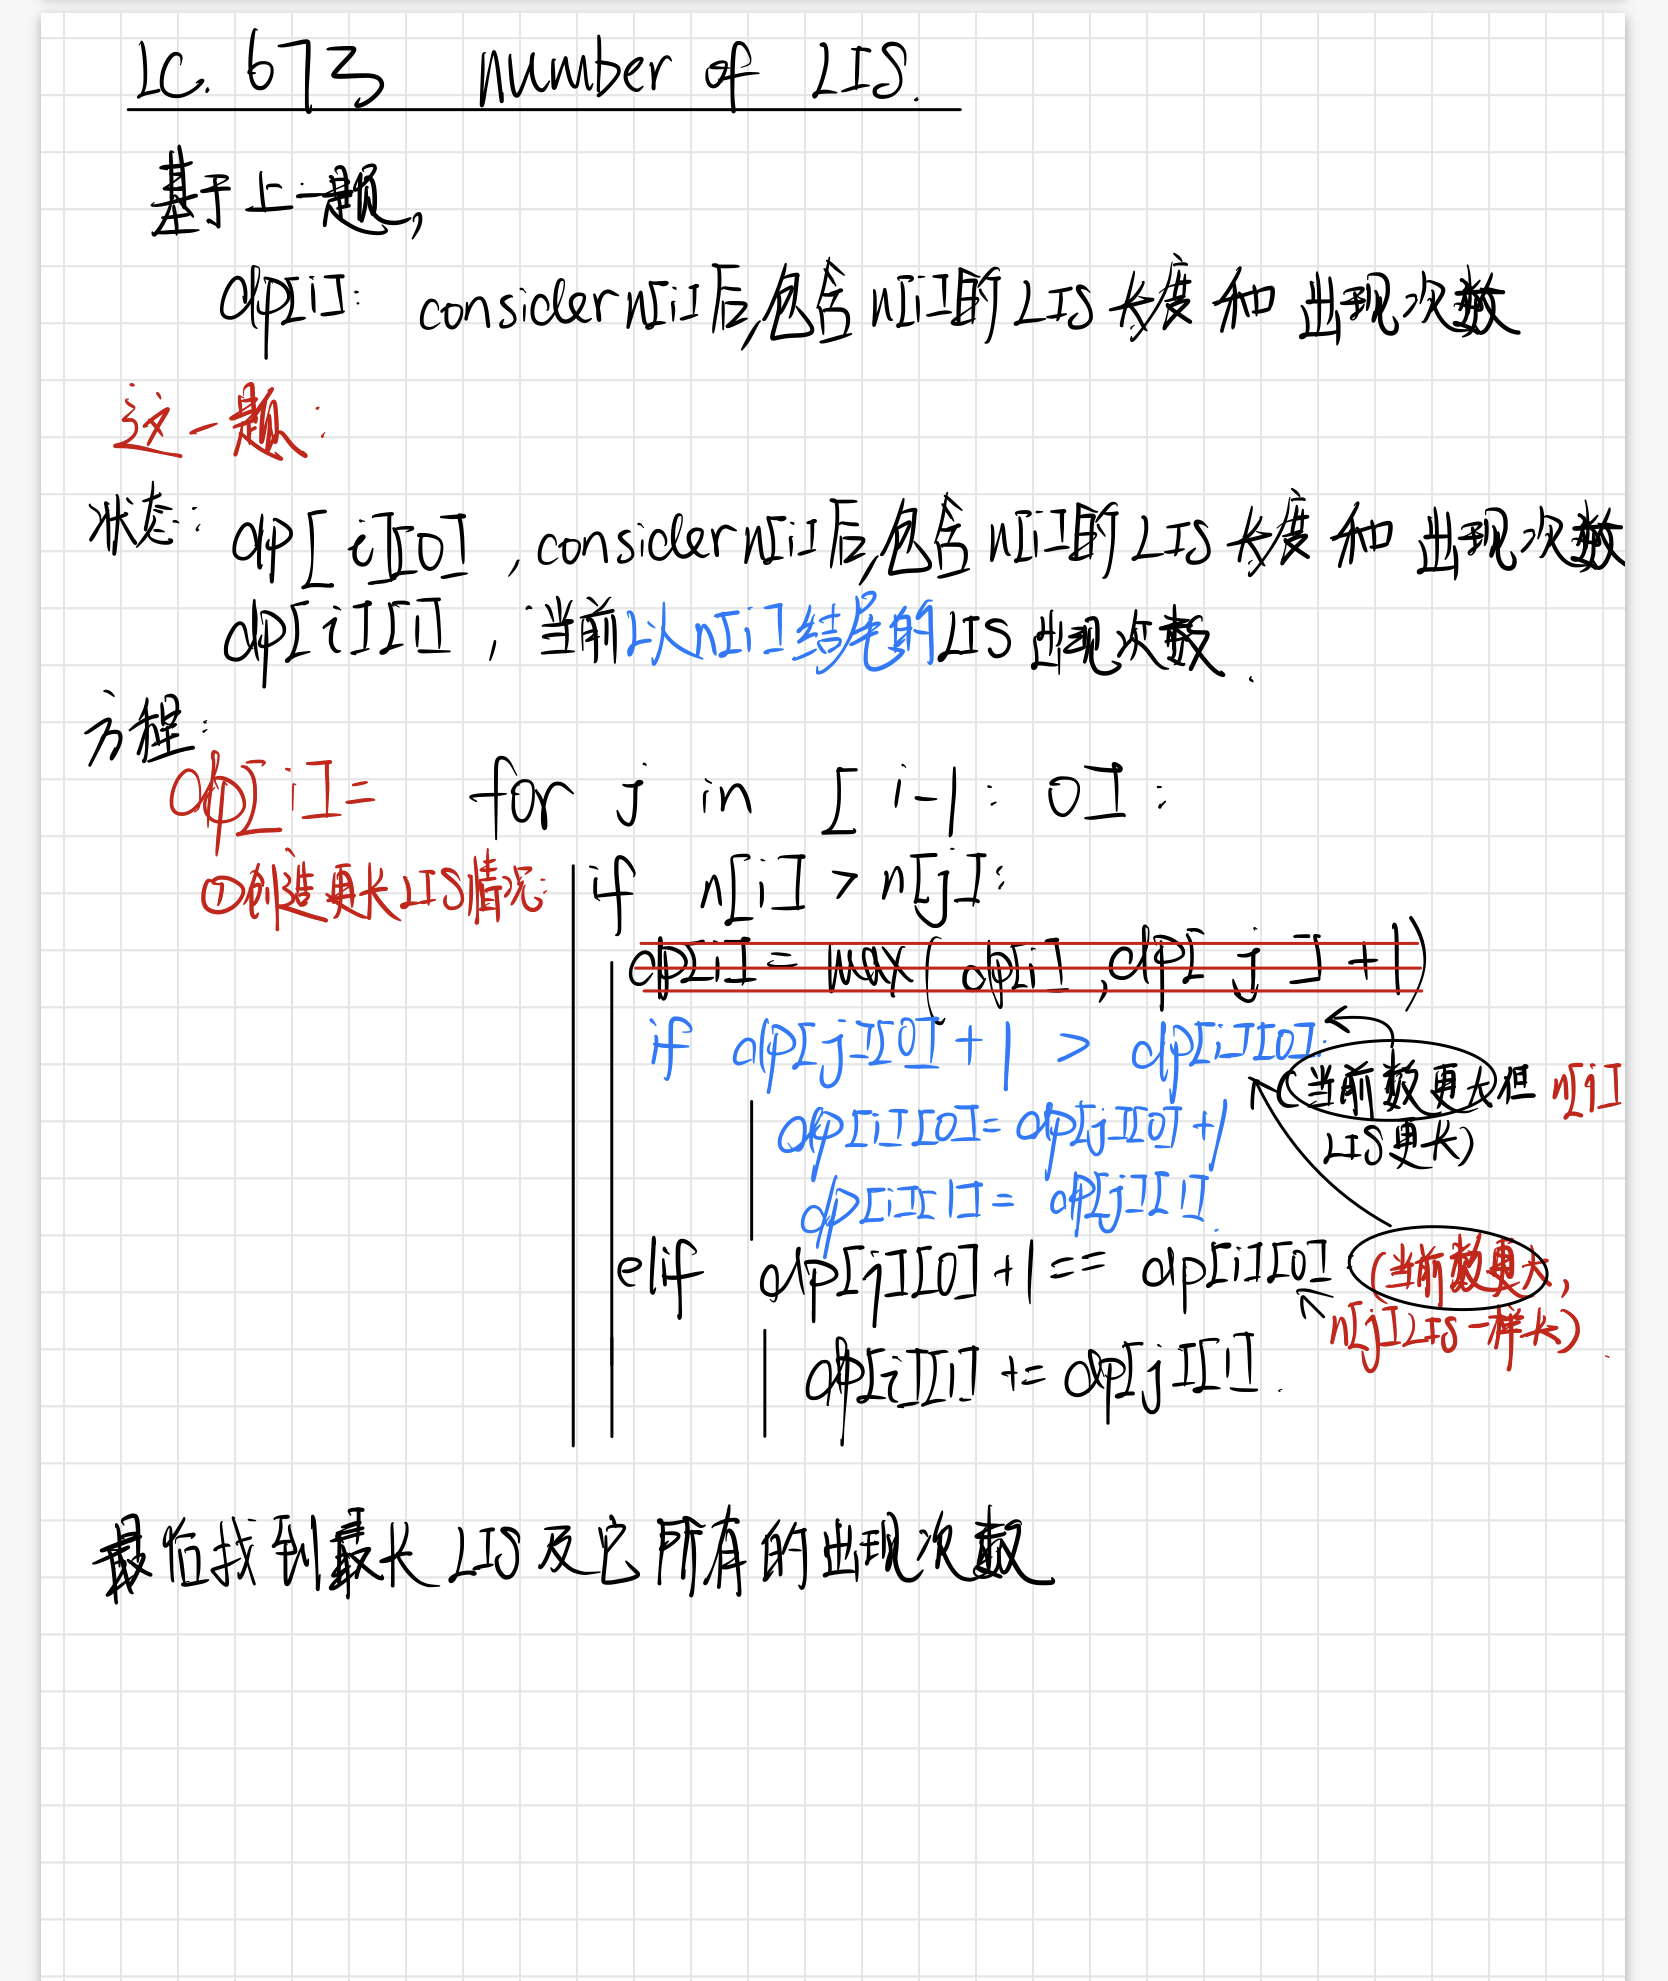 LC. 673 number of LIS.
基于上一题,
dp[i]: consider n[i]后,包含n[i]的LIS长度和出现次数
这一题:
状态: dp[i][0], consider n[i]后,包含n[i]的LIS长度和出现次数
dp[i][1], 当前以n[i]结尾的LIS出现次数.
方程:
dp[i]= for j in [i-1: 0]:
①创造更长LIS情况: if n[i] > n[j]:
dp[i] = max(dp[i], dp[j]+1)
if dp[j][0]+1 > dp[i][0]:
(当前数更大但 n[j]
dp[i][0]= dp[j][0]+1
LIS更长)
dp[i][1]= dp[j][1].
elif dp[j][0]+1== dp[i][0] (当前数更大,
n[j]LIS一样长).
dp[i][1] += dp[j][1].
最后找到最长LIS及它所有的出现次数